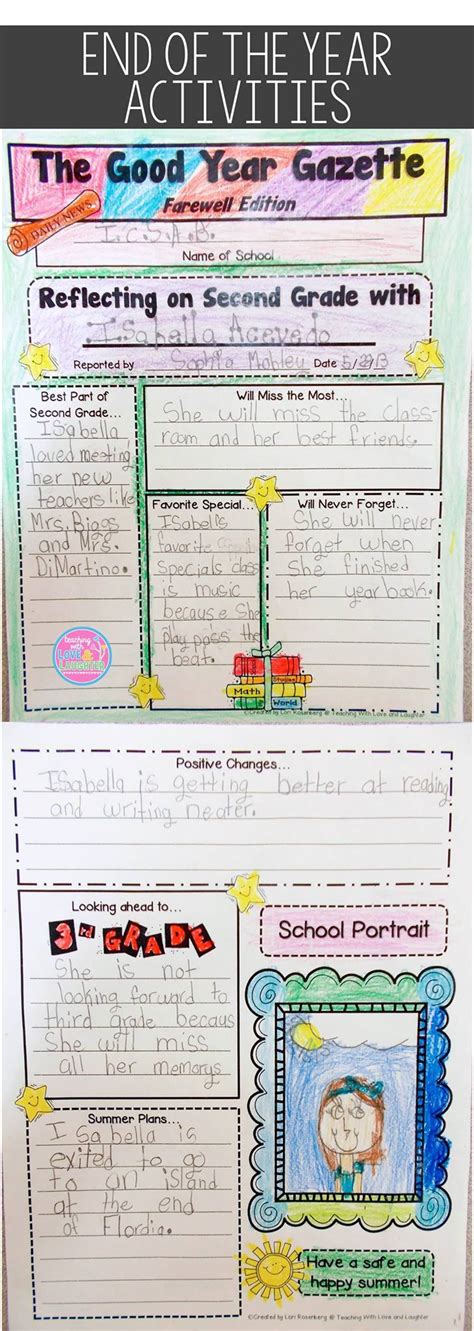 END OF THE YEAR
ACTIVITIES
The Good Year Gazette
Farewell Edition
DAILY NEWS
I.C.S.A.B.
Name of School
Reflecting on Second Grade with
ISabella Acevedo
Reported by Sophia Mobley Date 5/29/13
Best Part of
Second Grade...
ISabella
loved meeting
her new
teachers like
Mrs. Biggs
and Mrs.
DiMartino.
Will Miss the Most...
She will miss the class-
room and her best friends.
Favorite Special...
ISabells
favorite
specials class
is music
because She
Play pass the
beat.
Will Never Forget...
She will never
forget when
She finished
her yearbook.
teaching
with
LOVE &
LAUGHTER
Math
World
©Created by Lori Rosenberg @ Teaching With Love and Laughter
Positive Changes...
ISabella is getting better at reading
and writing neater.
Looking ahead to...
3rd GRADE
She is not
looking forward to
third grade becaus
She will miss
all her memorys
School Portrait
Summer Plans...
ISabella is
exited to go
to un island
at the end
of Flordia.
Have a safe and
happy summer!
©Created by Lori Rosenberg @ Teaching With Love and Laughter